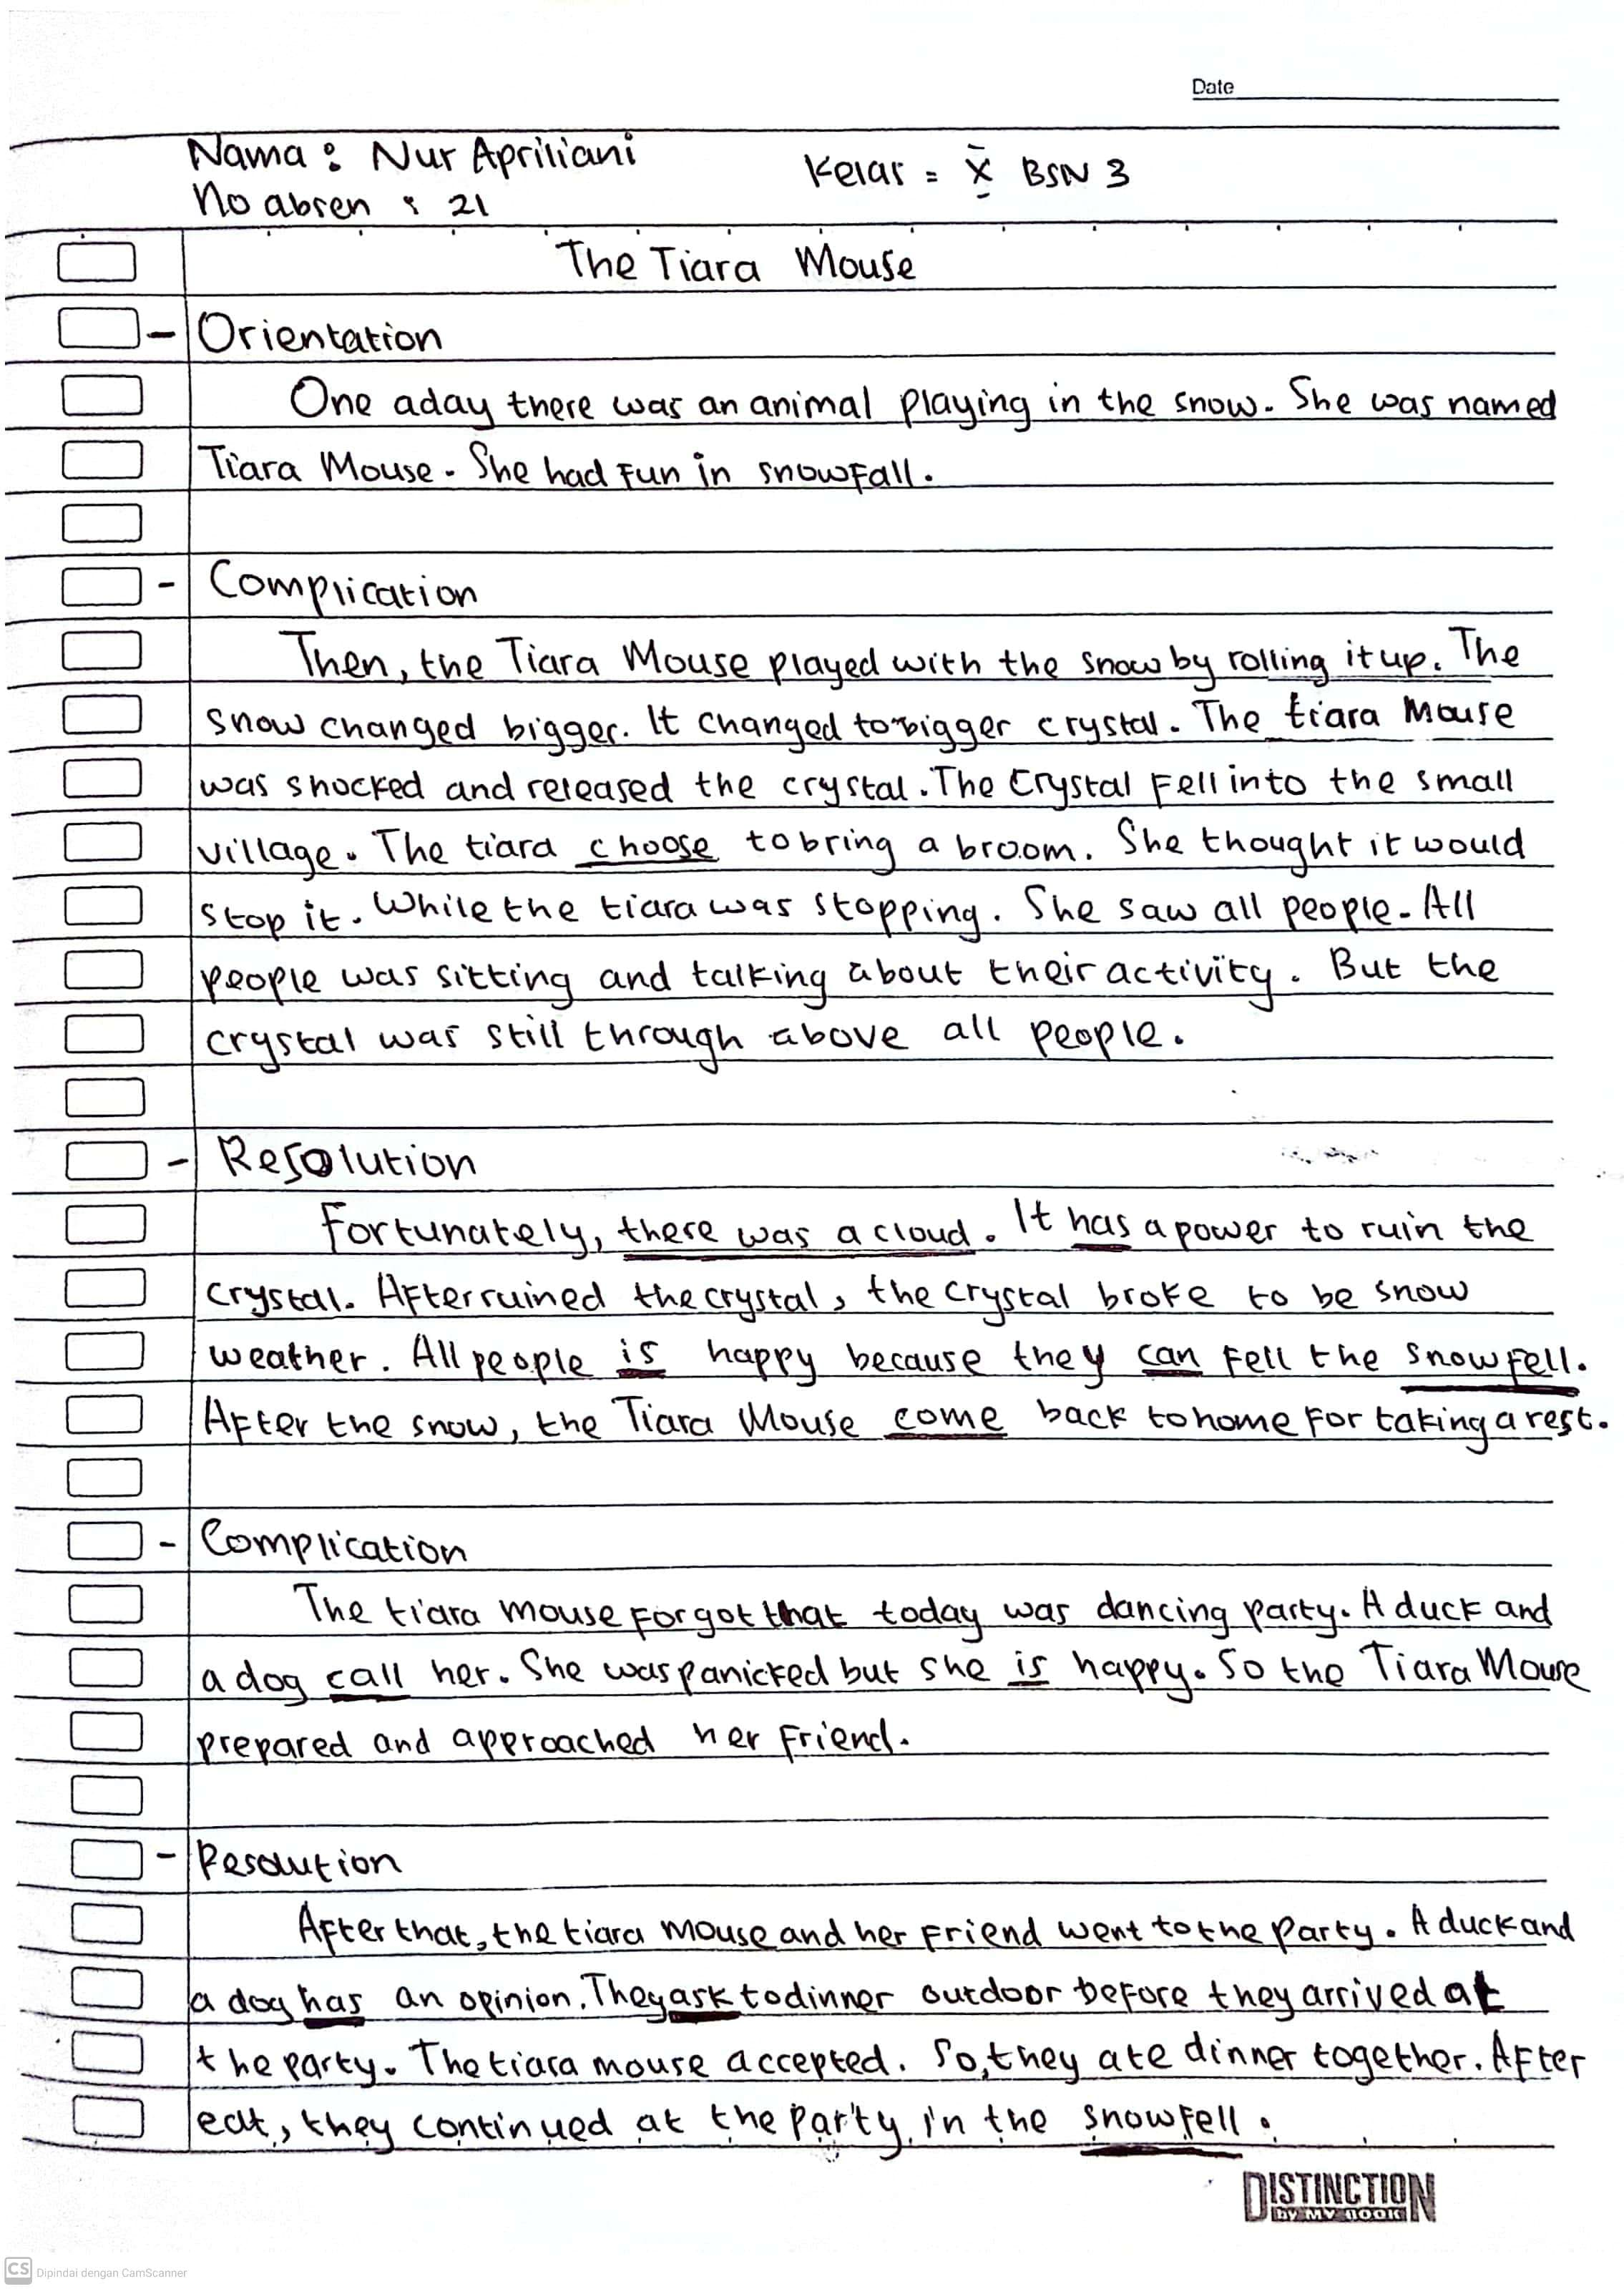 Date
Nama : Nur Apriliani
Kelas = X BSN 3
No absen : 21
The Tiara Mouse
- Orientation
One aday there was an animal playing in the snow. She was named
Tiara Mouse. She had fun in snowfall.
- Complication
Then, the Tiara Mouse played with the snow by rolling it up. The
snow changed bigger. It changed to bigger crystal. The tiara Mouse
was shocked and released the crystal. The Crystal fell into the small
village. The tiara choose to bring a broom. She thought it would
stop it. While the tiara was stopping. She saw all people. All
people was sitting and talking about their activity. But the
crystal was still through above all people.
- Resolution
Fortunately, there was a cloud. It has a power to ruin the
crystal. After ruined the crystal, the crystal broke to be snow
weather. All people is happy because they can fell the snowfell.
After the snow, the Tiara Mouse come back to home for taking a rest.
- Complication
The tiara mouse forgot that today was dancing party. A duck and
a dog call her. She was panicked but she is happy. So the Tiara Mouse
prepared and approached her friend.
- Resolution
After that, the tiara mouse and her friend went to the party. A duck and
a dog has an opinion. They ask to dinner outdoor before they arrived at
the party. The tiara mouse accepted. So, they ate dinner together. After
eat, they continued at the party in the snowfell.
DISTINCTION
by MY BOOK
CS Dipindai dengan CamScanner